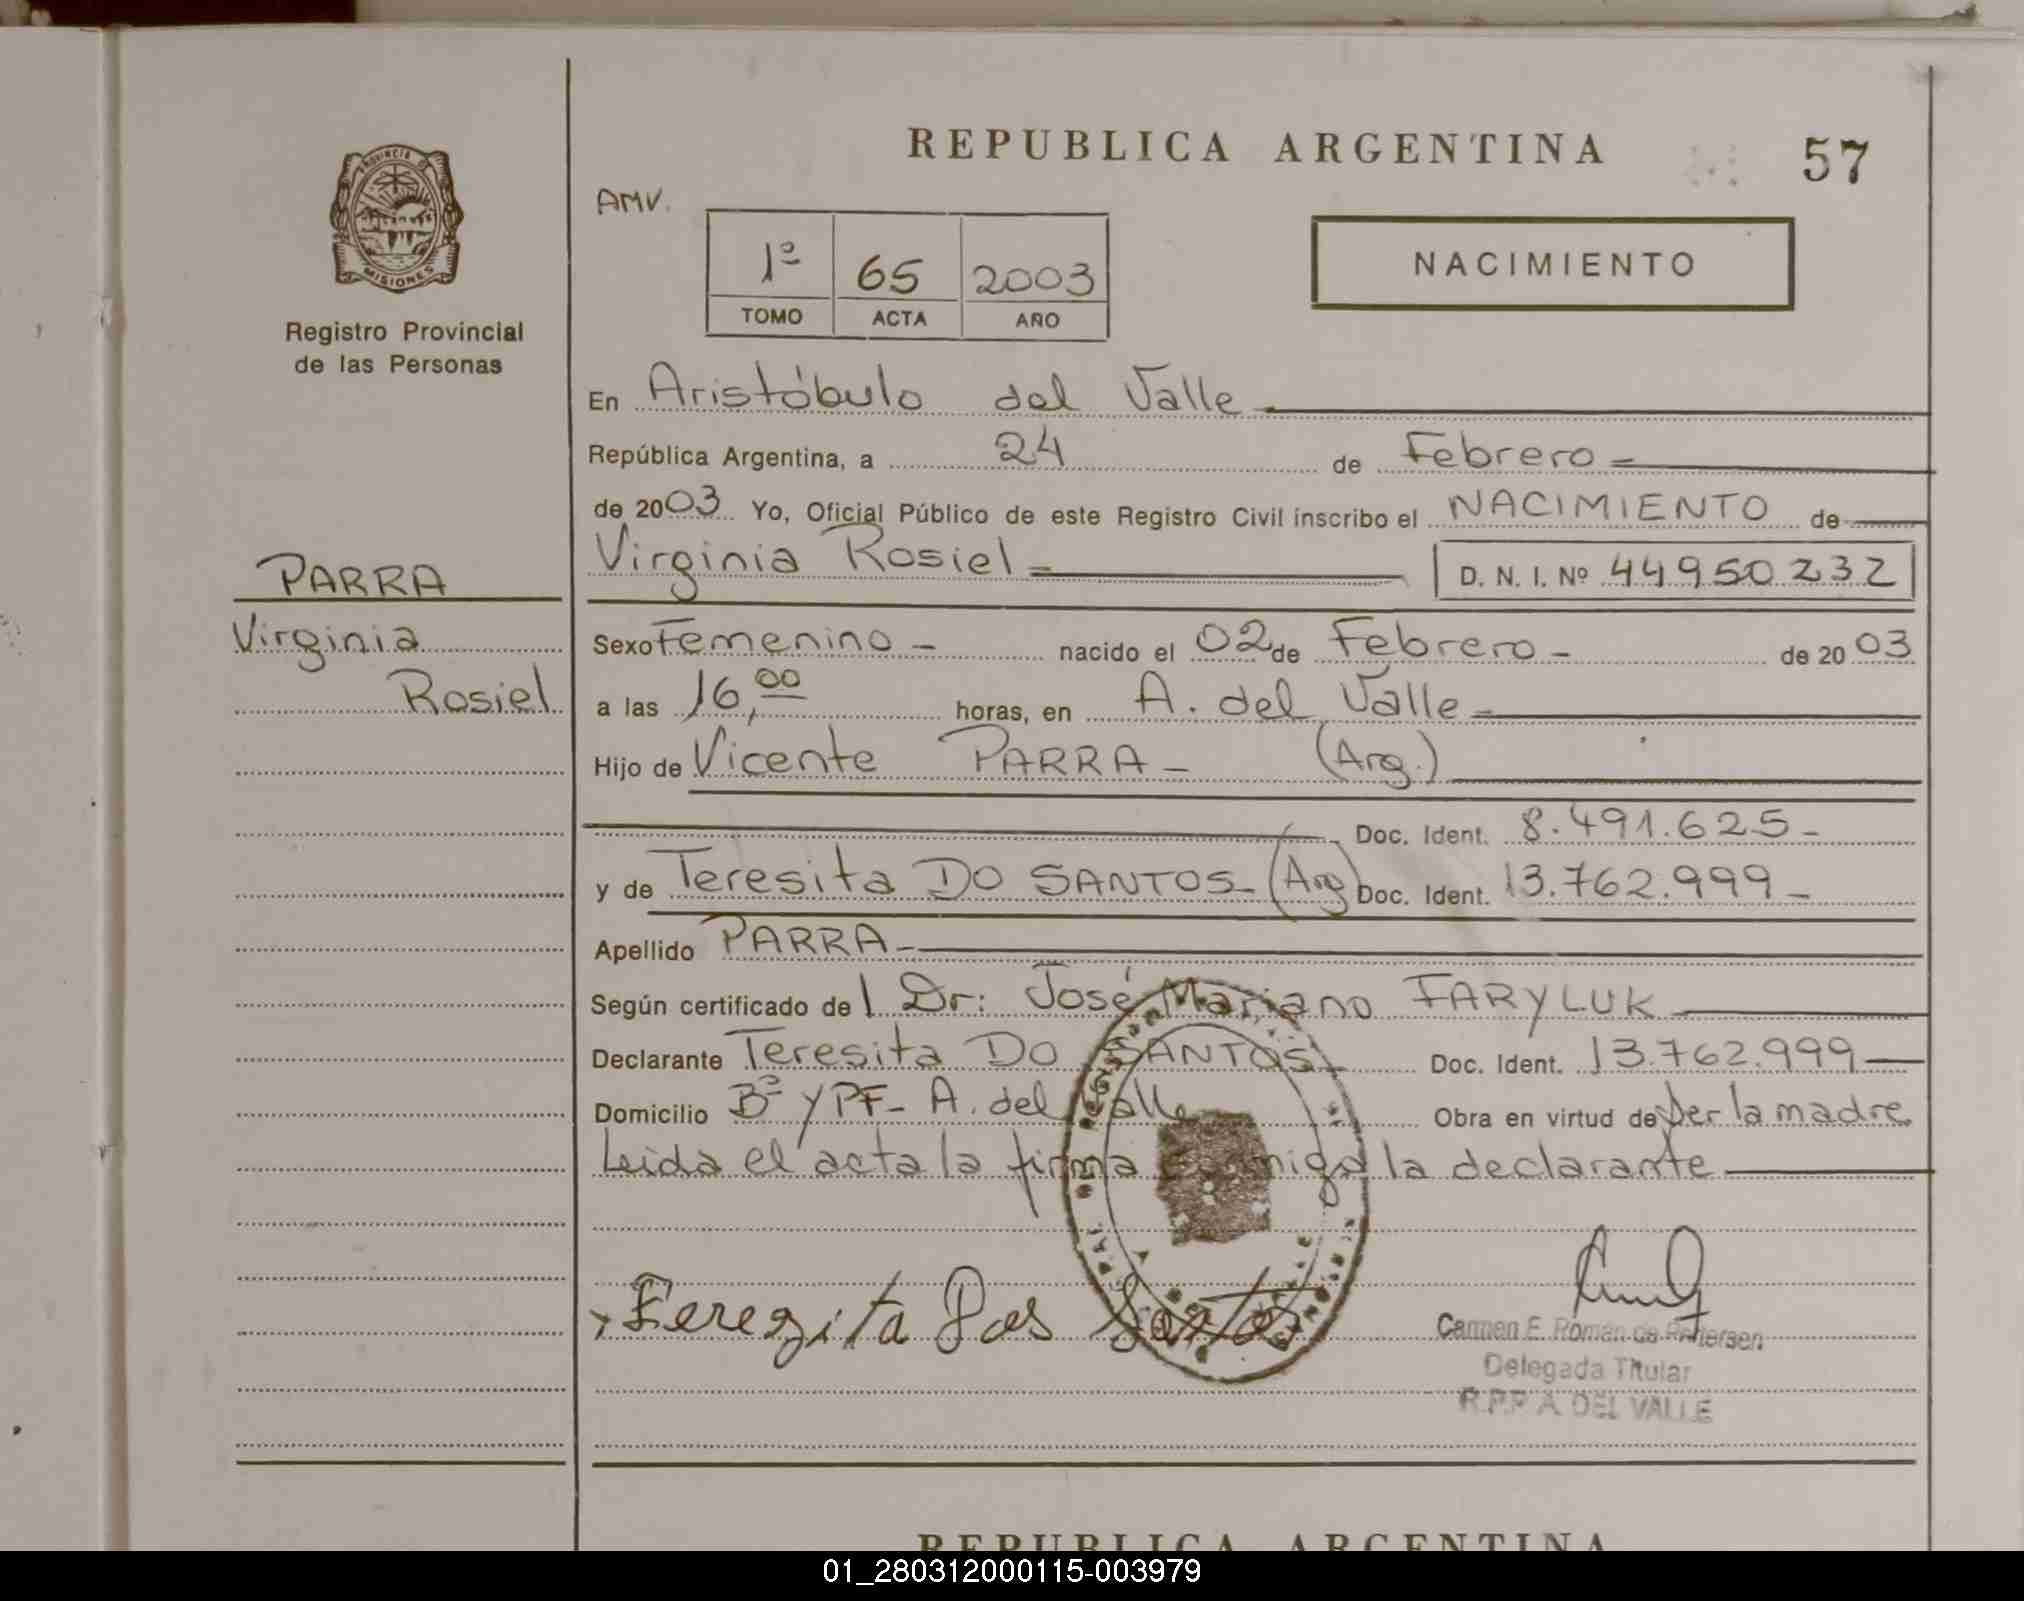 REPUBLICA ARGENTINA
57
AMV.
PROVINCIA DE
MISIONES
Registro Provincial
de las Personas
1º 65 2003
TOMO ACTA AÑO
NACIMIENTO
En Aristóbulo del Valle
República Argentina, a 24 de Febrero
de 2003 Yo, Oficial Público de este Registro Civil inscribo el NACIMIENTO de
Virginia Rosiel D. N. I. Nº 44950232
PARRA
Virginia
Rosiel
Sexo Femenino - nacido el 02 de Febrero - de 2003
a las 16,00 horas, en A. del Valle
Hijo de Vicente PARRA - (Arg.)
Doc. Ident. 8.491.625 -
y de Teresita DO SANTOS - (Arg) Doc. Ident. 13.762.999 -
Apellido PARRA -
Según certificado de l Dr: José Mariano FARYLUK
Declarante Teresita DO SANTOS Doc. Ident. 13.762.999
Domicilio Bº YPF - A. del Valle Obra en virtud de Ser la madre
Leida el acta la firma conmigo la declarante
Terezita Dos Santos
Carmen E. Román de Pettersen
Delegada Titular
R.P.P A. DEL VALLE
REPUBLICA ARGENTINA
01_280312000115-003979